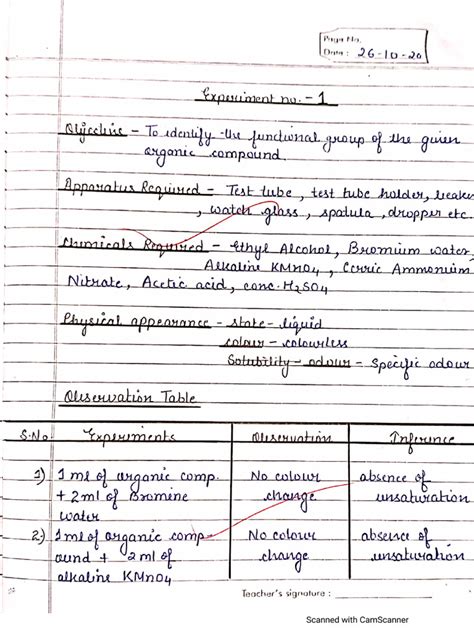 Page No.
Date: 26-10-20
Experiment no. - 1
Objective - To identify the functional group of the given
organic compound.
Apparatus Required - Test tube, test tube holder, beaker
, watch glass, spatula, dropper etc.
Chemicals Required - Ethyl Alcohol, Bromium water,
Alkaline KMnO4, Cerric Ammonium
Nitrate, Acetic acid, conc. H2SO4
Physical appearance - state - liquid
colour - colourless
Solubility - odour - Specific odour
Observation Table
S.No Experiments Observation Inference
1) 1 ml of organic comp. No colour absence of
+ 2 ml of Bromine change unsaturation
water
2.) 1 ml of organic comp- No colour absence of
ound + 2 ml of change unsaturation
alkaline KMnO4
Teacher's signature :
Scanned with CamScanner